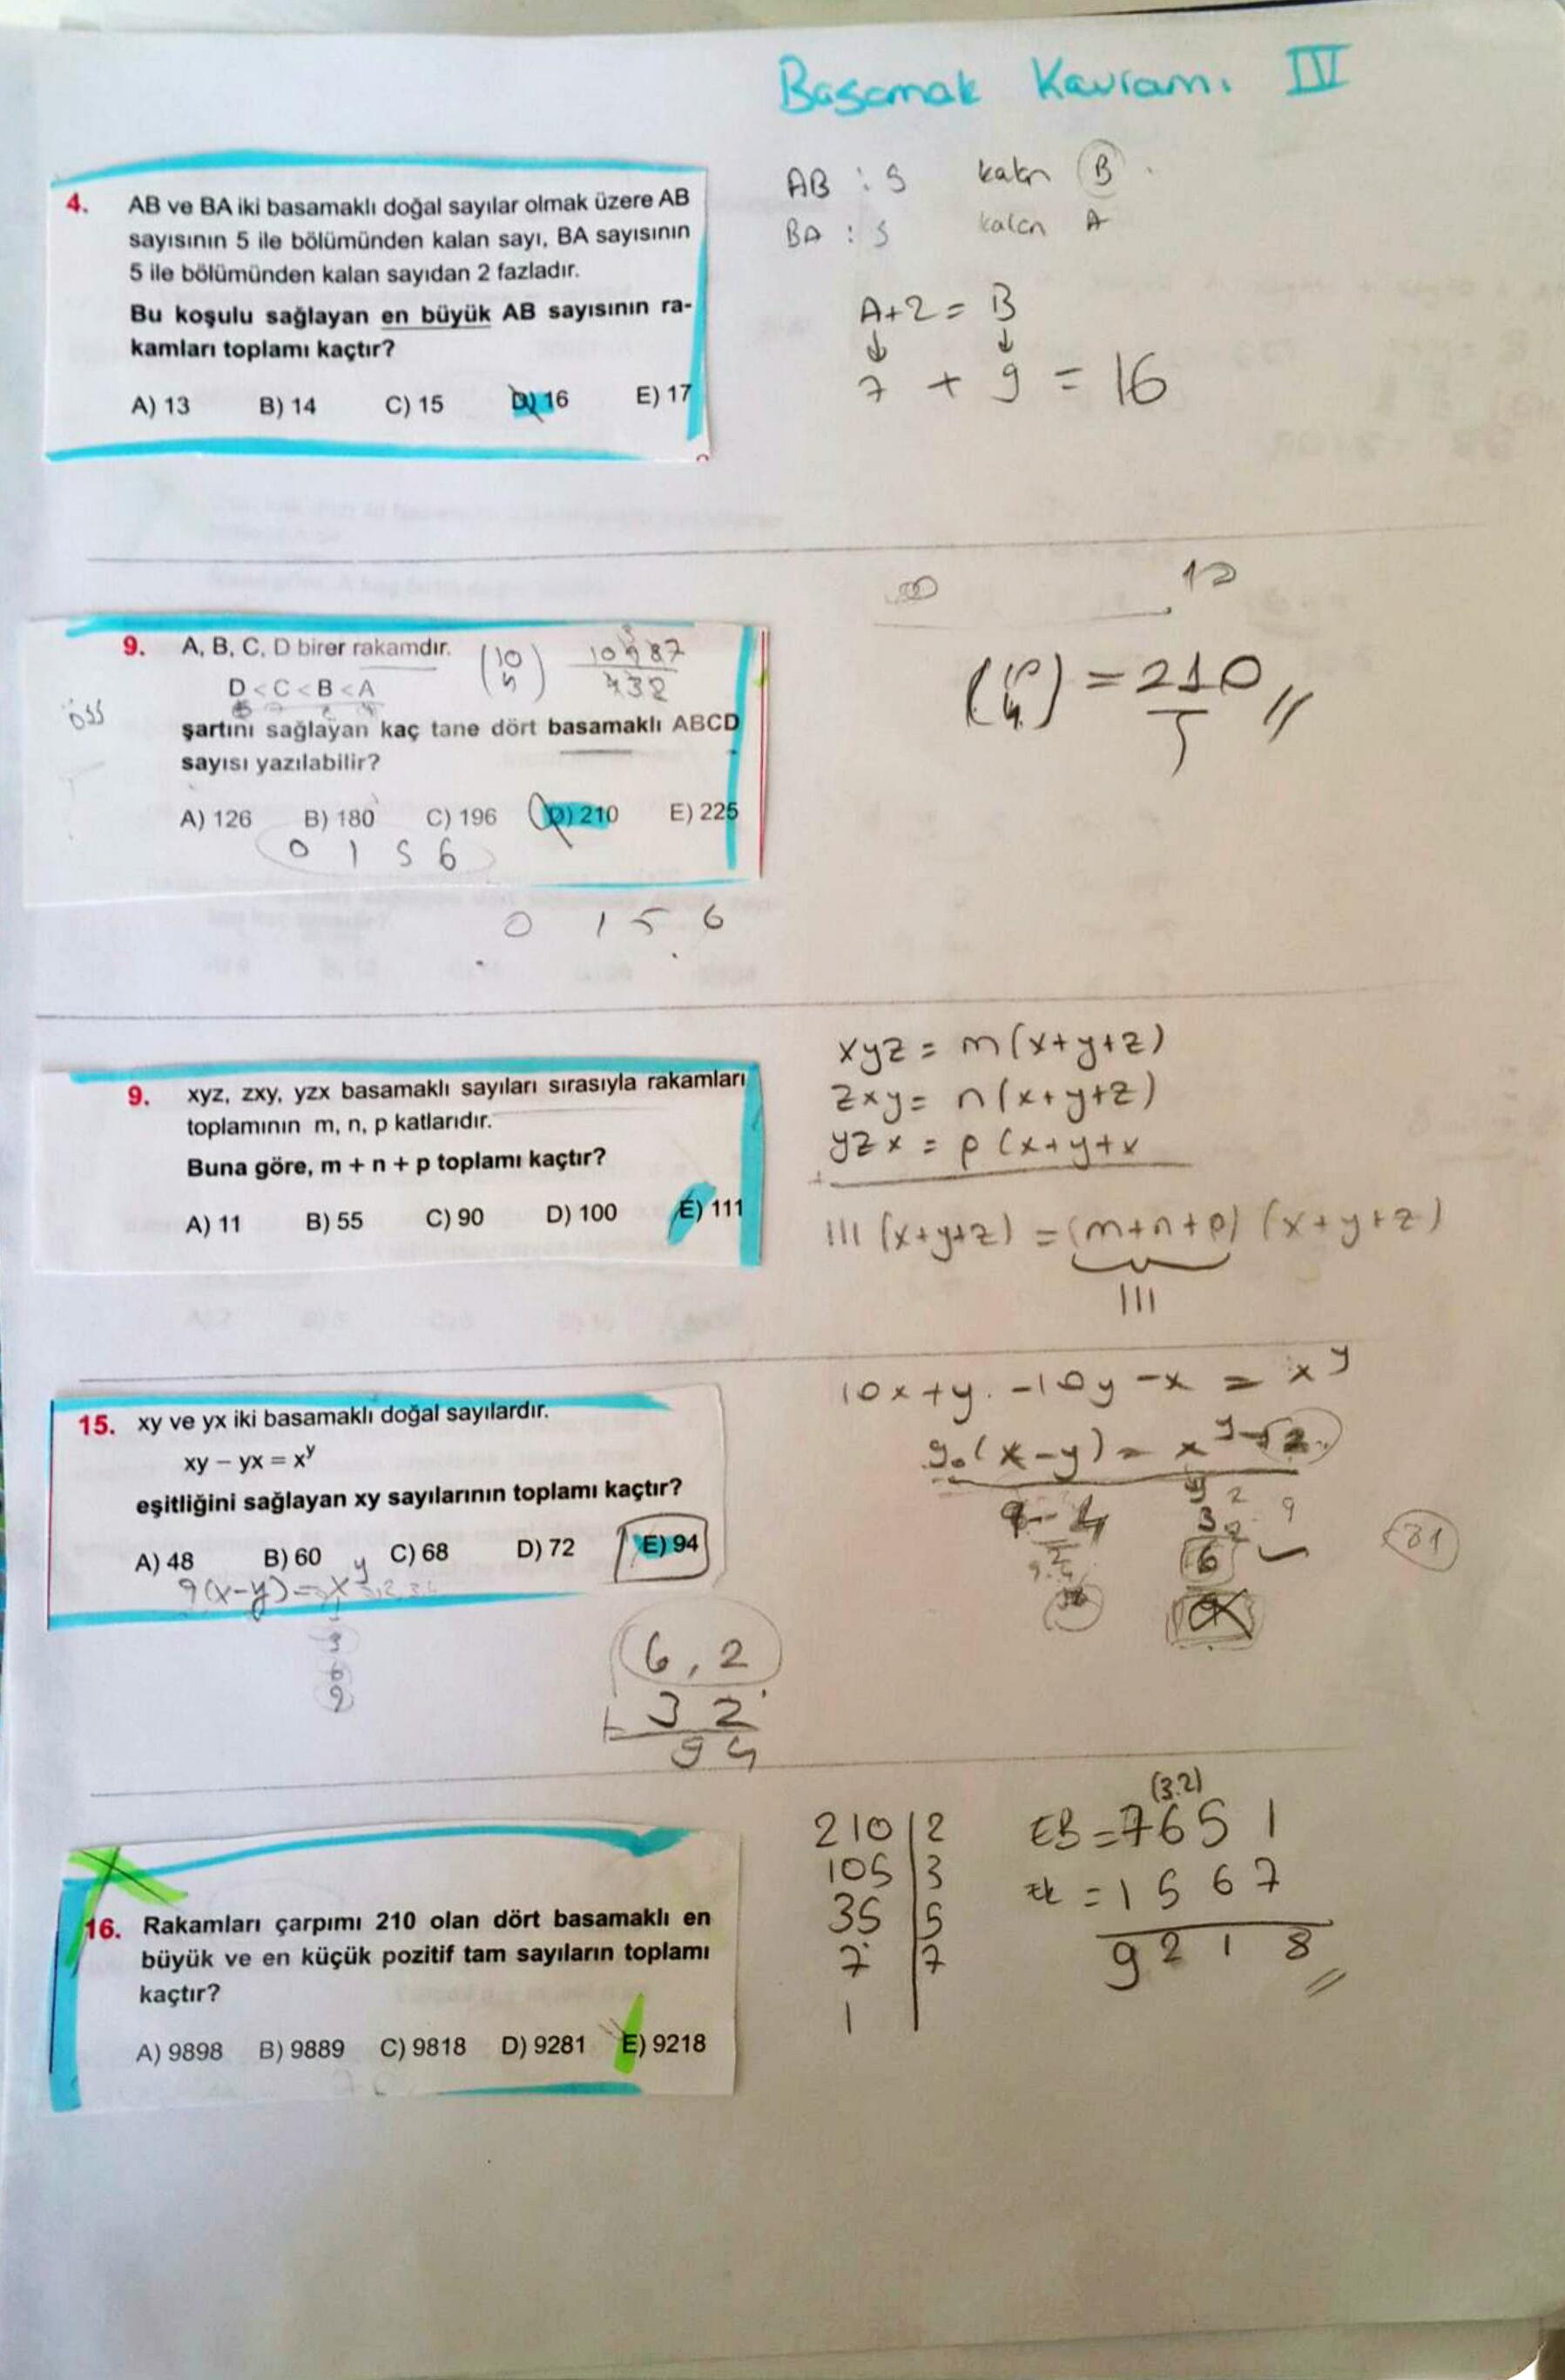 Basamak Kavramı IV
4. AB ve BA iki basamaklı doğal sayılar olmak üzere AB
sayısının 5 ile bölümünden kalan sayı, BA sayısının
5 ile bölümünden kalan sayıdan 2 fazladır.
Bu koşulu sağlayan en büyük AB sayısının ra-
kamları toplamı kaçtır?
A) 13 B) 14 C) 15 D) 16 E) 17
AB : 5 kalan B
BA : 5 kalan A
A+2 = B
7 + 9 = 16
9. A, B, C, D birer rakamdır.
D < C < B < A
şartını sağlayan kaç tane dört basamaklı ABCD
sayısı yazılabilir?
A) 126 B) 180 C) 196 D) 210 E) 225
öss
0 1 5 6
0 1 5 6
10
= 210
9. xyz, zxy, yzx basamaklı sayıları sırasıyla rakamları
toplamının m, n, p katlarıdır.
Buna göre, m + n + p toplamı kaçtır?
A) 11 B) 55 C) 90 D) 100 E) 111
xyz = m(x+y+z)
zxy = n(x+y+z)
yzx = p(x+y+x
111 (x+y+z) = (m+n+p) (x+y+z)
111
15. xy ve yx iki basamaklı doğal sayılardır.
xy – yx = x^y
eşitliğini sağlayan xy sayılarının toplamı kaçtır?
A) 48 B) 60 C) 68 D) 72 E) 94
9(x-y) = x^y
3
6
9
10x+y-10y-x = x^y
9.(x-y) = x^y
81
6,2
+ 32
94
16. Rakamları çarpımı 210 olan dört basamaklı en
büyük ve en küçük pozitif tam sayıların toplamı
kaçtır?
A) 9898 B) 9889 C) 9818 D) 9281 E) 9218
210 | 2
105 | 3
35 | 5
7 | 7
1
(3.2)
EB = 7651
EK = 1567
9218